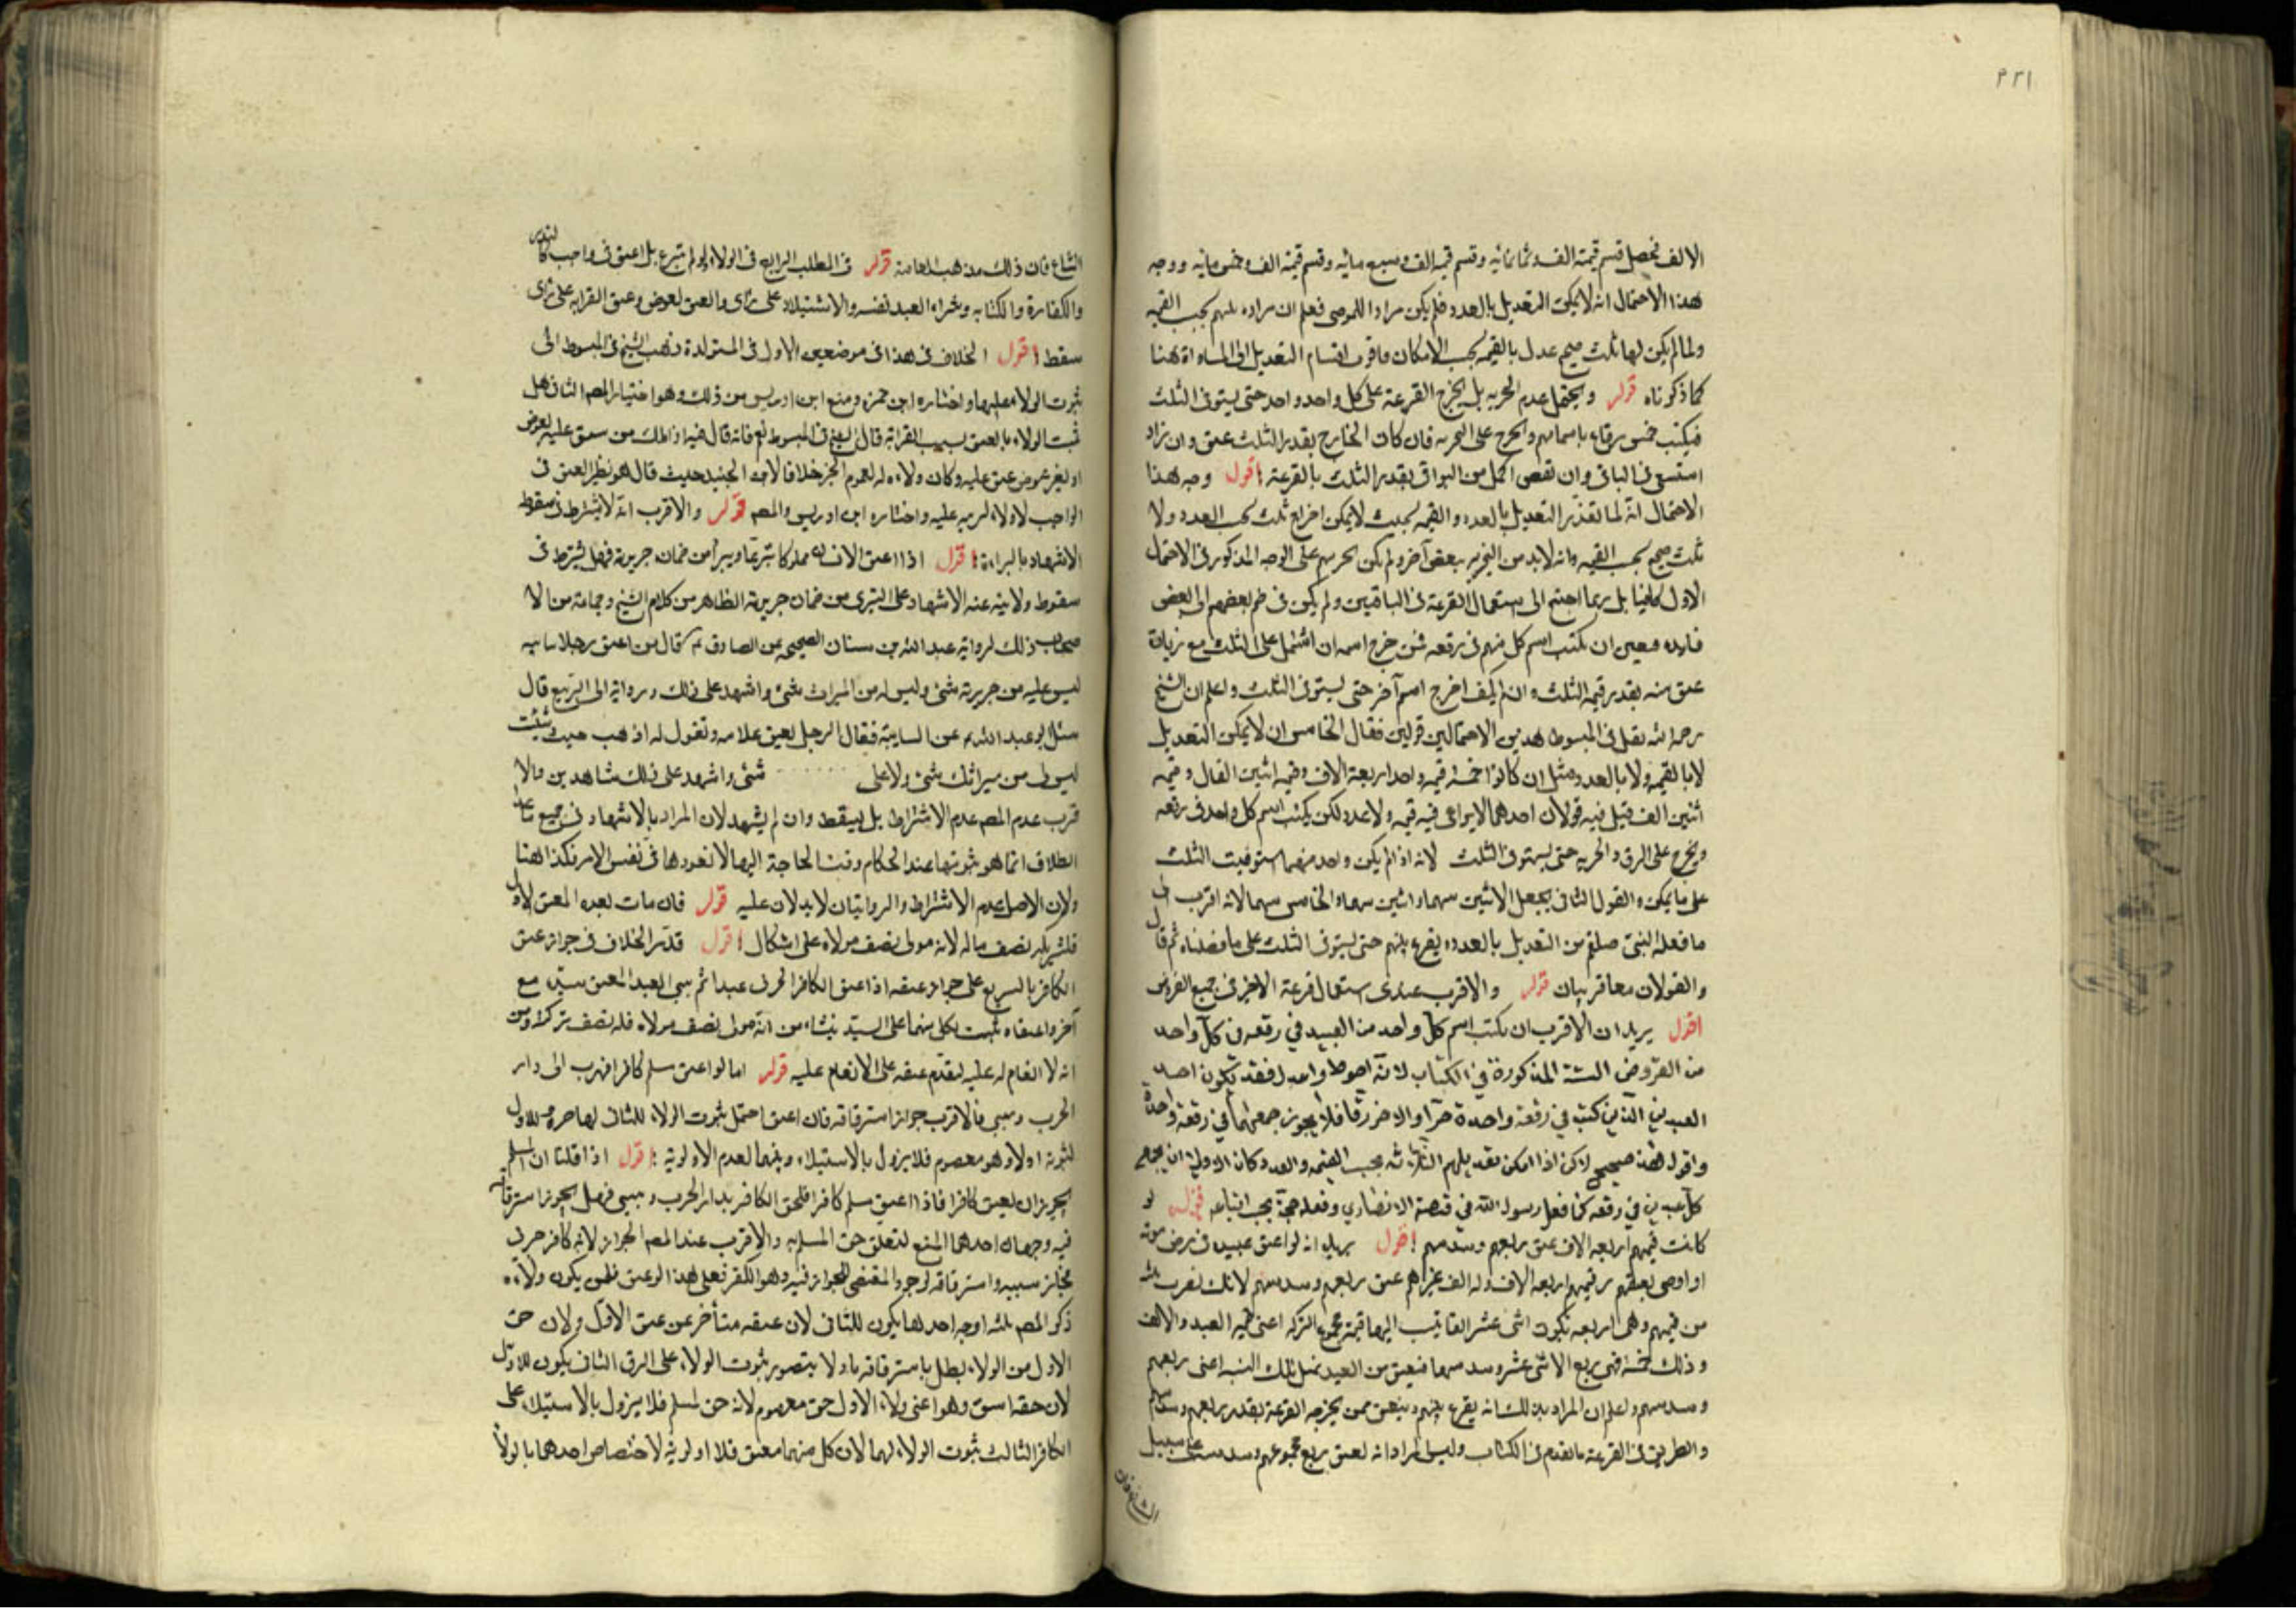 ٢٣١
الالف فيحصل قسم قيمته الف وثمانمائه وقسم قيمه الف وسبع مائيه وقسم قيمته الف وخمس مائيه ووجه
هذا الاحتمال انه لايمكن التعديل بالعدد فلم يكن مرادا للموصى فعلم ان مراده عتقهم بحسب القيمه
ولما لم يكن لها ثلث صحيح عدل بالقيمه بحسب الامكان واقرب اقسام التعديل الى المساواة هنا
كما ذكرناه قوله ويحتمل عدم الحريه بل يخرج القرعة على كل واحد واحد حتى يستوفى الثلث
فيكتب خمس رقاع باسمائهم ويخرج على الحريه فان كان الخارج بقدر الثلث عتق وان زاد
استسعى فى الباقى وان نقص اكمل من البواقى بقدر الثلث بالقرعة اقول وجه هذا
الاحتمال انه لما تعذر التعديل بالعدد والقيمه بحيث لايمكن اخراج ثلث بحسب العدد ولا
ثلث صحيح بحسب القيمه وانه لابد من التجزيه ببعض آخر ولم يكن تحريرهم على الوجه المذكور فى الاحتمال
الاول كافيا بل ربما احتيج الى استعمال القرعة فى الباقين ولم يكن فى ضم بعضهم الى البعض
فايده فتعين ان يكتب اسم كل منهم فى رقعه فمن خرج اسمه ان اشتمل على الثلث مع زيادة
عتق منه بقدر قيمه الثلث وان لم يكف اخرج اسم آخر حتى يستوفى الثلث واعلم ان الشيخ
رحمه الله نقل فى المبسوط هذين الاحتمالين قولين فقال الخامس ان لايمكن التعديل
لابالقيمه ولا بالعدد مثل ان كانوا خمسة قيمه واحد اربعة الاف وقيمه اثنين الفان وقيمه
اثنين الف قيل فيه قولان احدهما لا يراعى فيه قيمه ولا عدد لكن يكتب اسم كل واحد فى رقعه
ويخرج على الرق والحريه حتى يستوفى الثلث لانه اذا لم يكن واحد منهما استوفيت الثلث
على ما يمكن والقول الثانى يجعل الاثنين سهما واثنين سهما والخامس سهما لانه اقرب الى
ما فعله النبى صلعم من التعديل بالعدد ويقرع بينهم حتى يستوفى الثلث على ما فصلناه ثم قال
والقولان معا قريبان قوله والاقرب عندى استعمال قرعة الاخير فى جميع الفروض
اقول يريد ان الاقرب ان يكتب اسم كل واحد من العبيد في رقعه فى كل واحد
من الفروض الستة المذكورة في الكتاب لانه احوط واعدل فقد يكون احد
العبدين الذين كتب في رقعة واحدة حرا والاخر رقا فلا يجوز جمعهما في رقعة واحدة
واقول هذا صحيح لكن اذا امكن تعديلهم اثلاثا بحسب القيمه والعدد كان الاولى ان يجمع
كل عبدين في رقعه كما فعل رسول الله في قصة الانصاري وفعله حجة يجب اتباعه قوله لو
كانت قيمهم اربعه الاف عتق ربعهم وسدسهم اقول يريد انه لو اعتق عبيده فى مرض موته
او اوصى بعتقهم وقيمهم اربعه الاف وله الف غيرهم عتق ربعهم وسدسهم لانك تضرب ثلثه
من قيمهم وهى اربعه تكون اثنى عشر الفا تنسب اليها قيمة مجموع التركه اعنى قيمه العبيد والالف
وذلك خمسة فهى ربع الاثنى عشر وسدسها فينعتق من العبيد بمثل تلك النسبه اعنى ربعهم
وسدسهم واعلم ان المراد بذلك انه يقرع بينهم وينعتق ممن يخرجه القرعة بقدر ربعهم وسدسهم
والطريق فى القرعة ما تقدم فى الكتاب وليس المراد انه يعتق ربع مجموعهم وسدسه على سبيل
الشياع فان
الشياع فان ذلك مذهب العامة قوله فى المطلب الرابع فى الولاء ولو لم يتبرع بل اعتق فى واجب كالنذر
والكفارة والكتابه وشراء العبد نفسه والاستيلاد على راى والعتق لعوض وعتق القرابه على راى
سقط اقول الخلاف فى هذا فى موضعين الاول فى المستولدة فذهب الشيخ فى المبسوط الى
ثبوت الولاء عليها واختاره ابن حمزه ومنع ابن ادريس من ذلك وهو اختيار المصم الثانى هل
يثبت الولاء بالعتق بسبب القرابة قال الشيخ فى المبسوط نعم فانه قال فيه اذا ملك من يعتق عليه بعوض
او بغير عوض عتق عليه وكان ولاءه له لعموم الخبر خلافا لابن الجنيد حيث قال هو نظير العتق فى
الواجب لا ولاء لربه عليه واختاره ابن ادريس والمصم قوله والاقرب انه لايشترط فى سقوط
الاشهاد بالبراءة اقول اذا اعتق الانسان مملوكا تبرعا ويبرأ من ضمان جريرة فهل يشترط فى
سقوط ولايته عنه الاشهاد على التبرى من ضمان جريرة الظاهر من كلام الشيخ وجماعة من الا
صحاب ذلك لرواية عبد الله بن سنان الصحيحه عن الصادق عم قال من اعتق رجلا سايبه
ليس عليه من جريرته شئ وليس له من الميراث شئ واشهد على ذلك ورواية ابى الربيع قال
سئل ابو عبد الله عم عن السايبة فقال الرجل يعتق غلامه ويقول له اذهب حيث شئت
ليس لى من ميراثك شئ ولا على شئ واشهد على ذلك شاهدين والا
قرب عدم المصم عدم الاشتراط بل يسقط وان لم يشهد لان المراد بالاشهاد فى جميع ما عدا
الطلاق انما هو ثبوتها عند الحكام وقت الحاجة اليها لانفوذها فى نفس الامر فكذا هنا
ولان الاصل عدم الاشتراط والروايتان لايدلان عليه قوله فان مات بعده المعتق الاول
فلشريكه نصف ماله لانه مولى نصف مولاه على اشكال اقول قد مر الخلاف فى جواز عتق
الكافر بالتفريع على جواز عتقه اذا اعتق الكافر الحربى عبدا ثم سبى العبد المعتق سيده مع
آخر واعتقاه ثبت لكل منهما على السيد ينشاء من انه مولى نصف مولاه فله نصف تركته ومن
انه لا انعام له عليه لتقدم عتقه على الانعام عليه قوله اما لو اعتق مسلم كافرا فهرب الى دار
الحرب وسبى فالاقرب جواز استرقاقه فان اعتق احتمل ثبوت الولاء للثانى لتأخره وللاول
لثبوته اولا وهو معصوم فلا يزول بالاستيلاء وبينهما لعدم الاولوية اقول اذا قلنا ان المسلم
يجوز ان يعتق كافرا فاذا اعتق مسلم كافرا فلحق الكافر بدار الحرب وسبى فهل يجوز استرقاقه
فيه وجهان احدهما المنع لتعلق حق المسلم به والاقرب عند المصم الجواز لانه كافر حربى
فجاز سبيه واسترقاقه لوجود المقتضى للجواز فيه وهو الكفر فعلى هذا لو عتق فلمن يكون ولاءه
ذكر المصم ثلثه اوجه احدها يكون للثانى لان عتقه متأخر عن عتق الاول ولان حق
الاول من الولاء بطل باسترقاقه ولا يتصور ثبوت الولاء على الرق الثانى يكون للاول
لان حقه اسبق وهو اعنى ولاء الاول حق معصوم لانه حق لمسلم فلا يزول بالاستيلاء على
الكافر الثالث ثبوت الولاء لهما لان كل منهما معتق فلا اولوية لاختصاص احدهما بالولاء